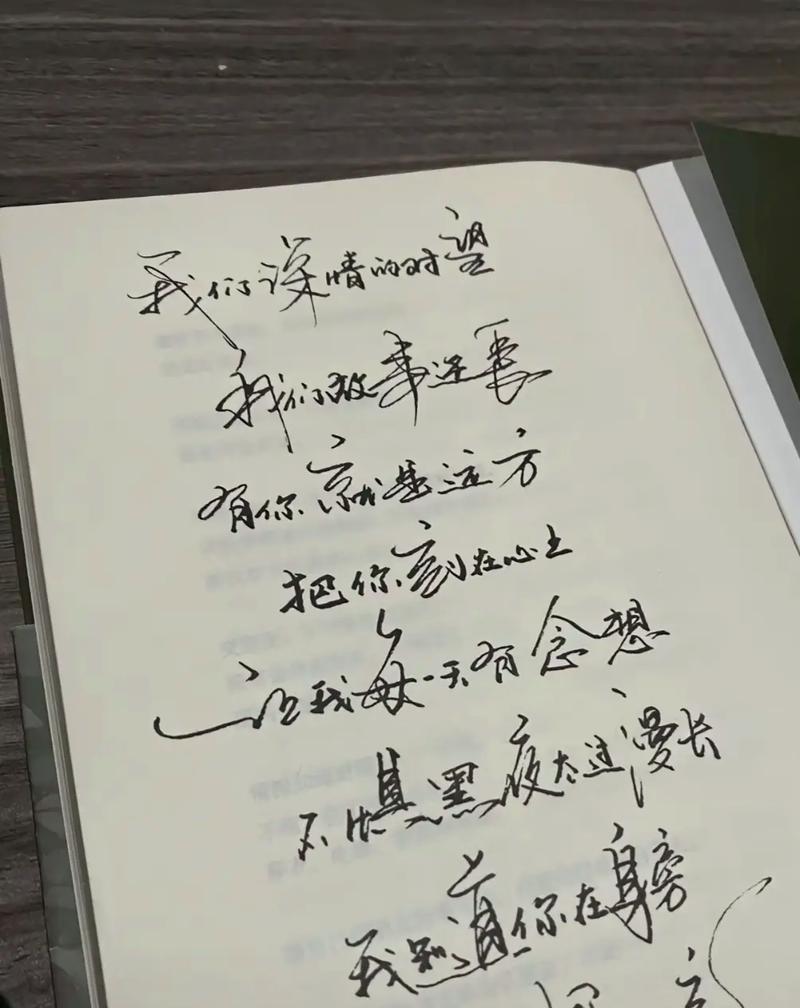 我们深情的对望
我们故事还長
有你就是远方
把你刻在心上
让我每一天有念想
不惧黑夜太过漫长
我知道你在身旁